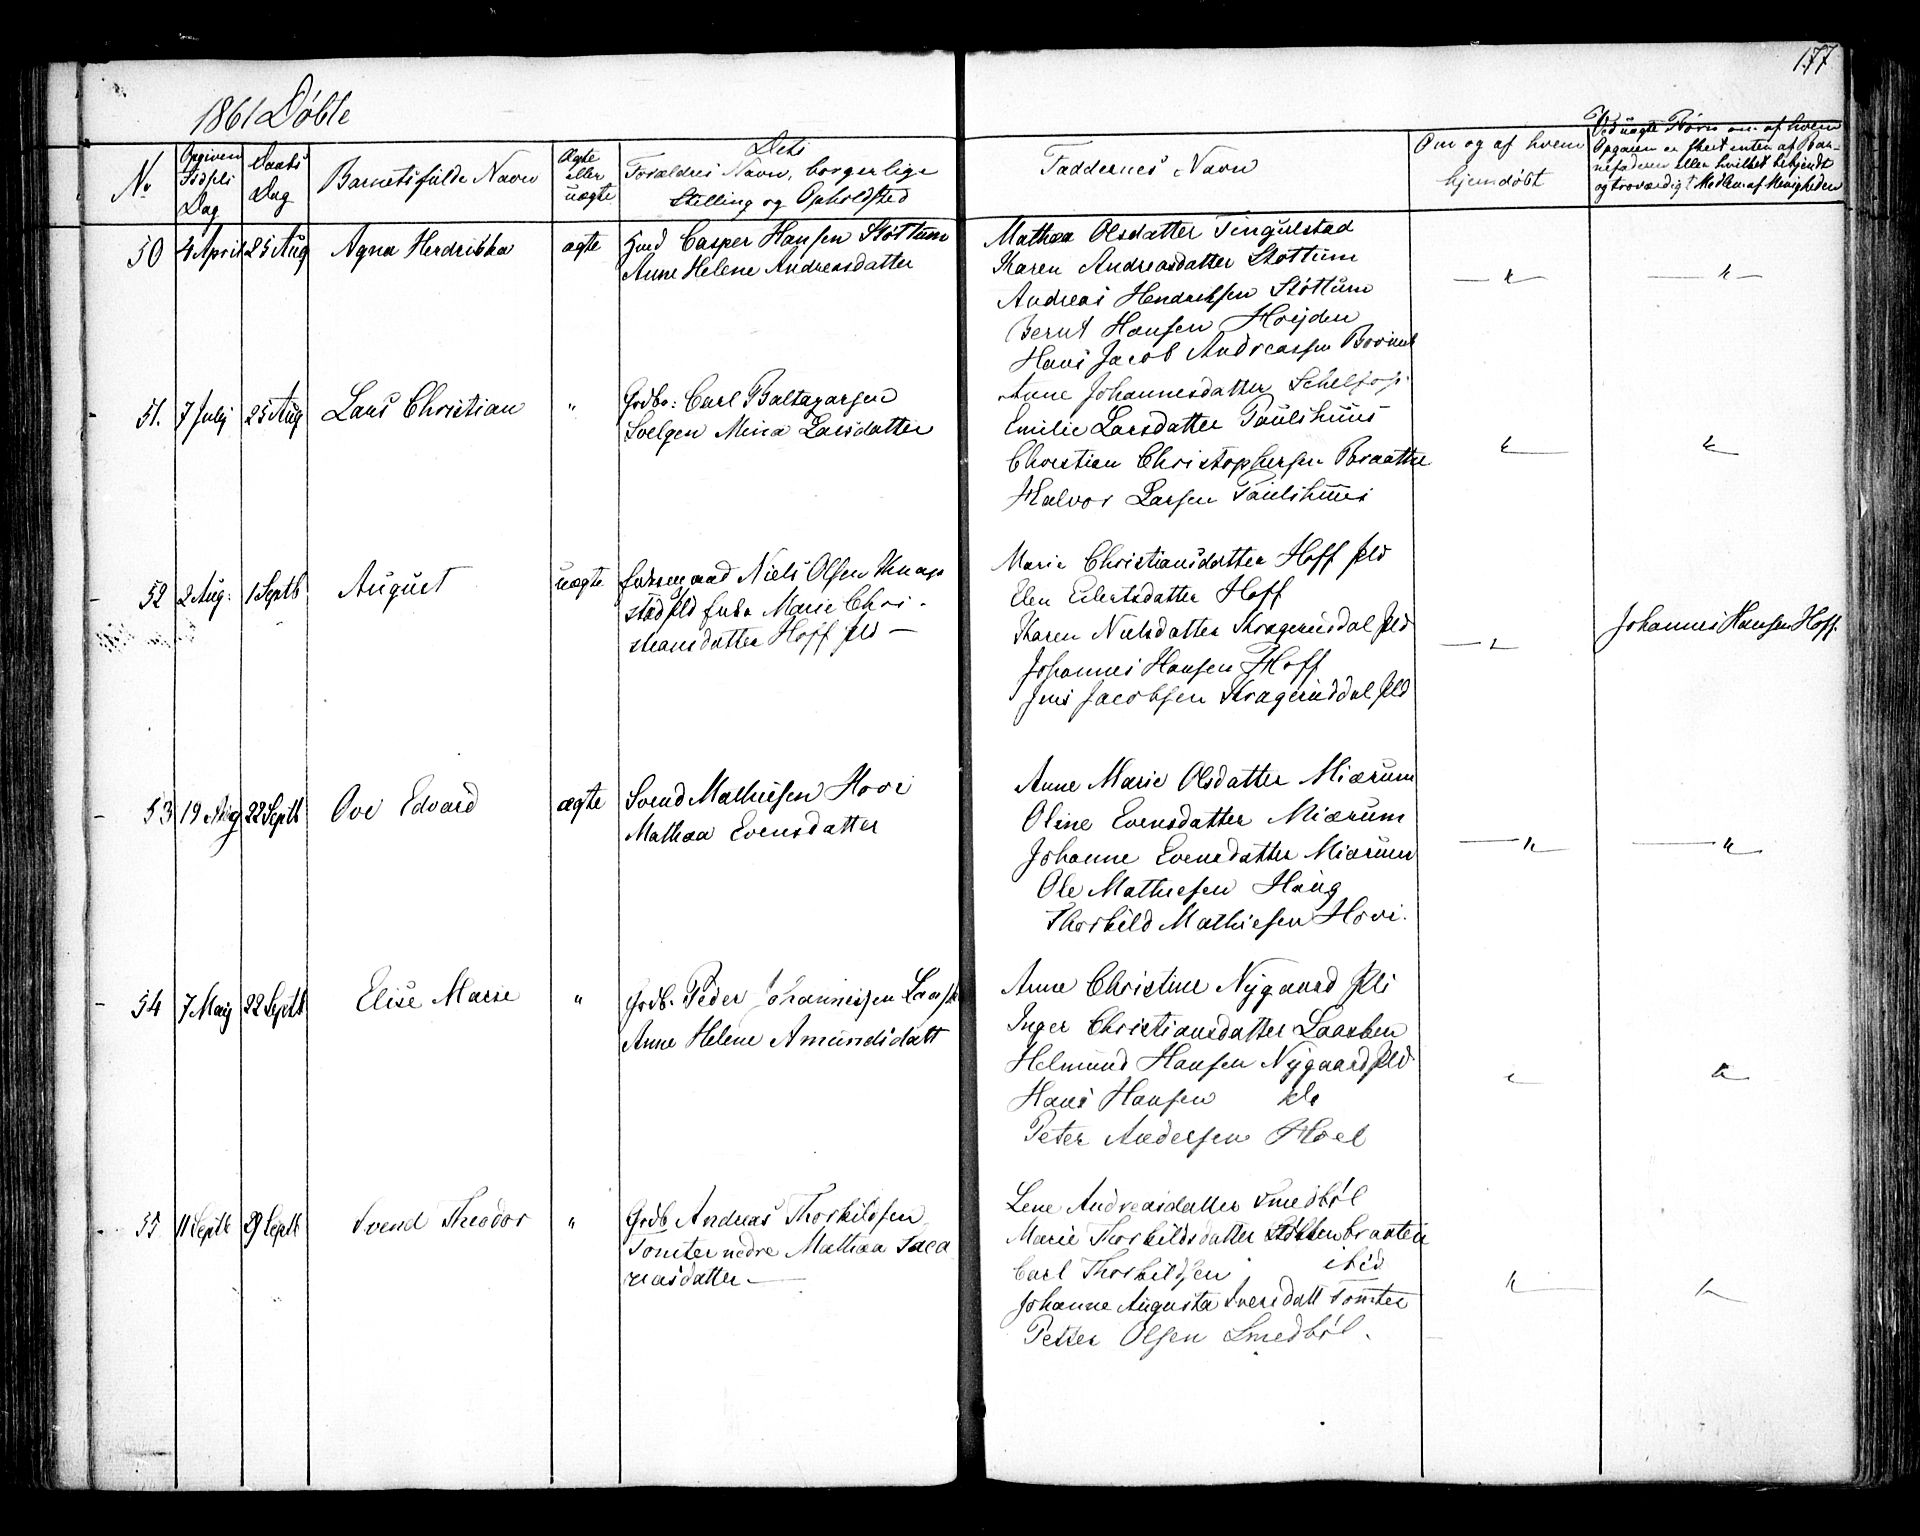 177
1861 Døbte
No
Opgiven
Fødsels
Dag
Daabs
Dag
Barnets fulde Navn
Ægte
eller
uægte
Dets
Forældres Navn, borgerlige
Stilling og Opholdsted
Faddernes Navn
Om og af hvem
hjemdøbt
Ved uægte Børn om af hvem
Opgaven er skeet enten af Bar-
nefaderen eller hvilket bekjendt
og troværdigt Medlem af Menigheden
50 4 April 25 Aug Agna Hendrikka ægte Casper Hansen Støttum
Anne Helene Andreasdatter
Mathea Olsdatter Tingulstad
Karen Andreasdatter Støttum
Andreas Hendriksen Støttum
Bernt Hansen Høijden
Hans Jacob Andreassen
51. 7 Julj 25 Aug Lars Christian " Grdbr: Carl Baltazarsen
Svelgen Mina Larsdatter
Anne Johannesdatter
Emilie Larsdatter Paulshuus
Christian Christophersen Braathe
Halvor Larsen Paulshuus
52 2 Aug. 1 Septb August uægte Niels Olsen Knap
stad pld Marie Chri-
stiansdatter Hoff pld —
Marie Christiansdatter Hoff pld
Elen Eilertsdatter Hoff
Karen Nielsdatter Kragerudsdal pld
Johannes Hansen Hoff
Jens Jacobsen Kragerudsdal pld
Johannes Hansen Hoff.
53 19 Aug 22 Septb Ove Edvard ægte Svend Mathiesen Hovi
Mathea Evensdatter
Anne Marie Olsdatter Miærum
Oline Evensdatter Miærum
Johanne Evensdatter Miærum
Ole Mathiesen Haug
Thorkild Mathiesen Hovi.
54 7 Maij 22 Septb Elise Marie " Grdb. Peder Johannesen
Anne Helene Amundsdatt
Anne Christine Nygaard
Inger Christiansdatter Laasken
Helmund Hansen Nygaard pld
Hans Hansen
Peter Andersen Hoel
55 11 Septb 29 Septb Svend Theodor " Grdb Andreas Thorkildsen
Tomter nedre Mathea Taca
riasdatter —
Lene Andreasdatter Smedbøl
Marie Thorkildsdatter braaten
Carl Thorkildsen ibid
Johanne Augusta Iversdatt Tomter
Petter Olsen Smedbøl.